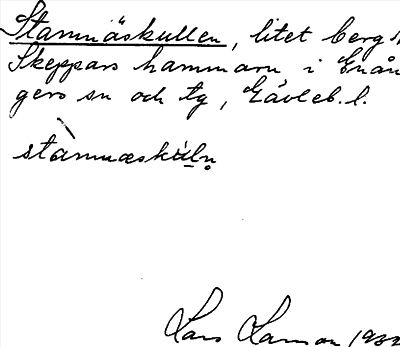 Stamnäskullen, litet berg
Skeppars hammarn i Enån
gers sn och tg, Gävleb. l.
stamnæskuln
Lars Larson